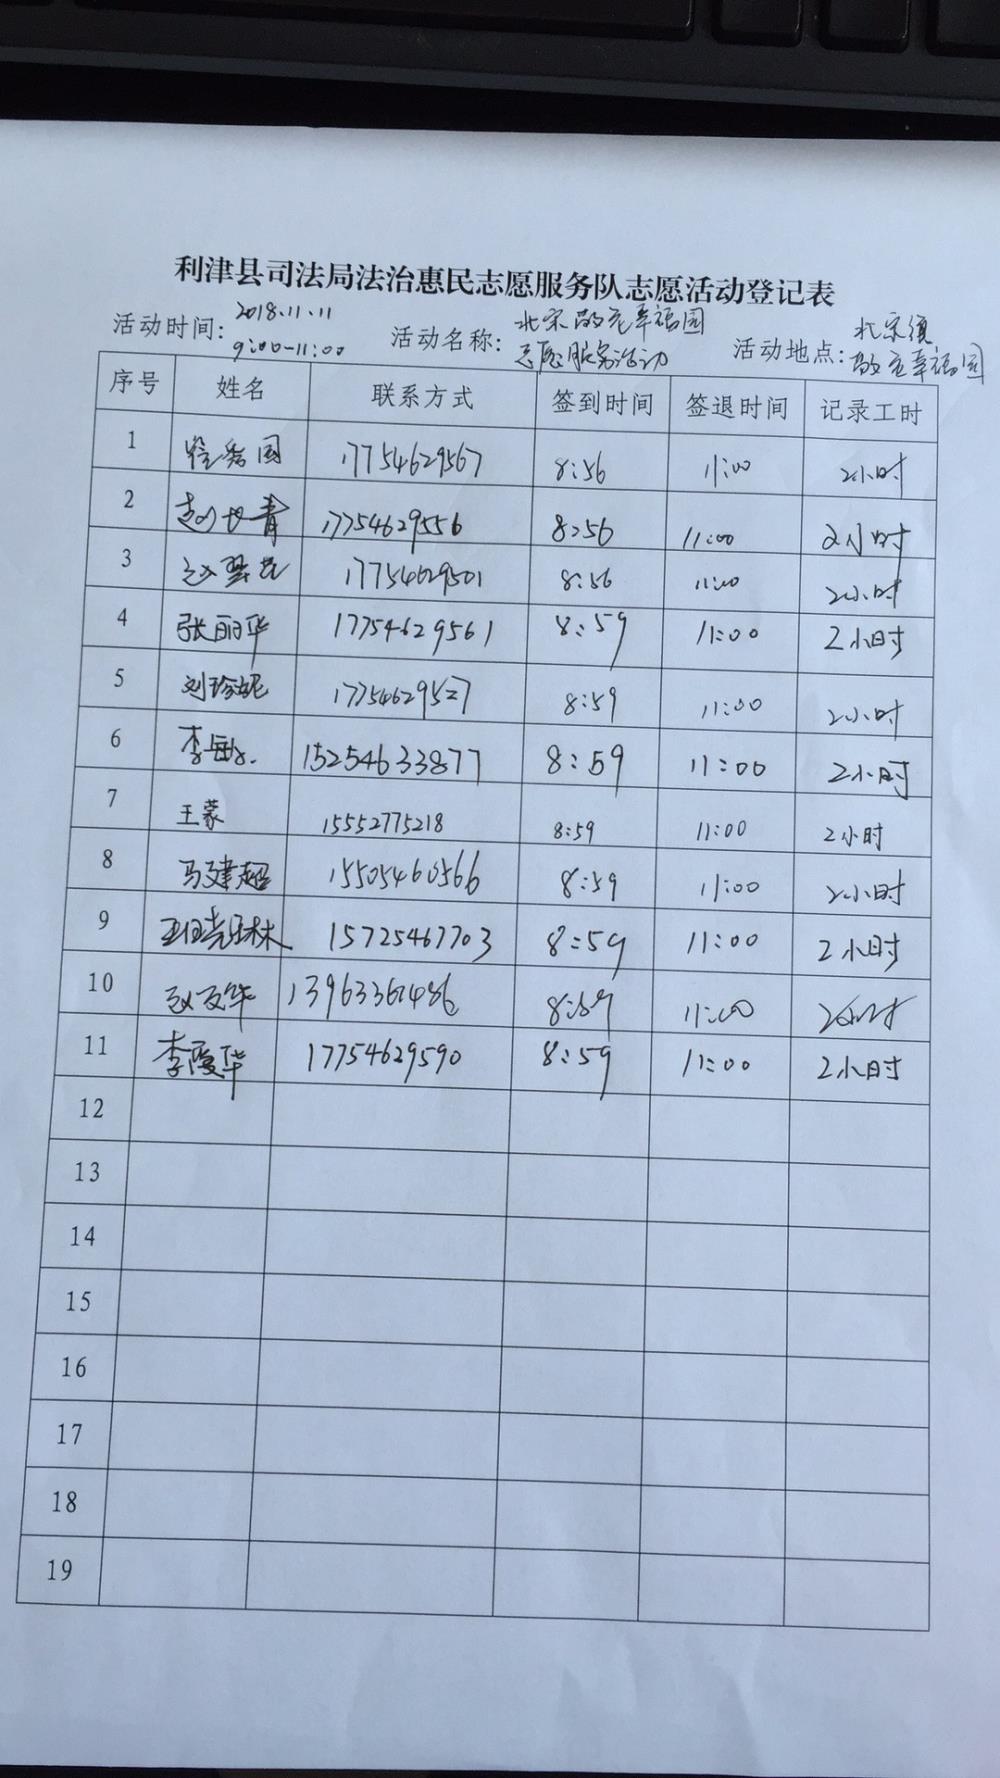 利津县司法局法治惠民志愿服务队志愿活动登记表
活动时间: 2018.11.11 9:00-11:00 活动名称: 北宋敬老幸福园志愿服务活动 活动地点: 北宋镇敬老幸福园
序号 姓名 联系方式 签到时间 签退时间 记录工时
1 17754629567 8:56 11:00 2小时
2 17754629556 8:56 11:00 2小时
3 17754629501 8:56 11:00 2小时
4 张丽华 17754629561 8:59 11:00 2小时
5 刘珍妮 17754629527 8:59 11:00 2小时
6 李敏 15254633877 8:59 11:00 2小时
7 王蒙 15552775218 8:59 11:00 2小时
8 马建超 15505460566 8:59 11:00 2小时
9 15725467703 8:59 11:00 2小时
10 8:59 11:00 2小时
11 李霞华 17754629590 8:59 11:00 2小时
12
13
14
15
16
17
18
19